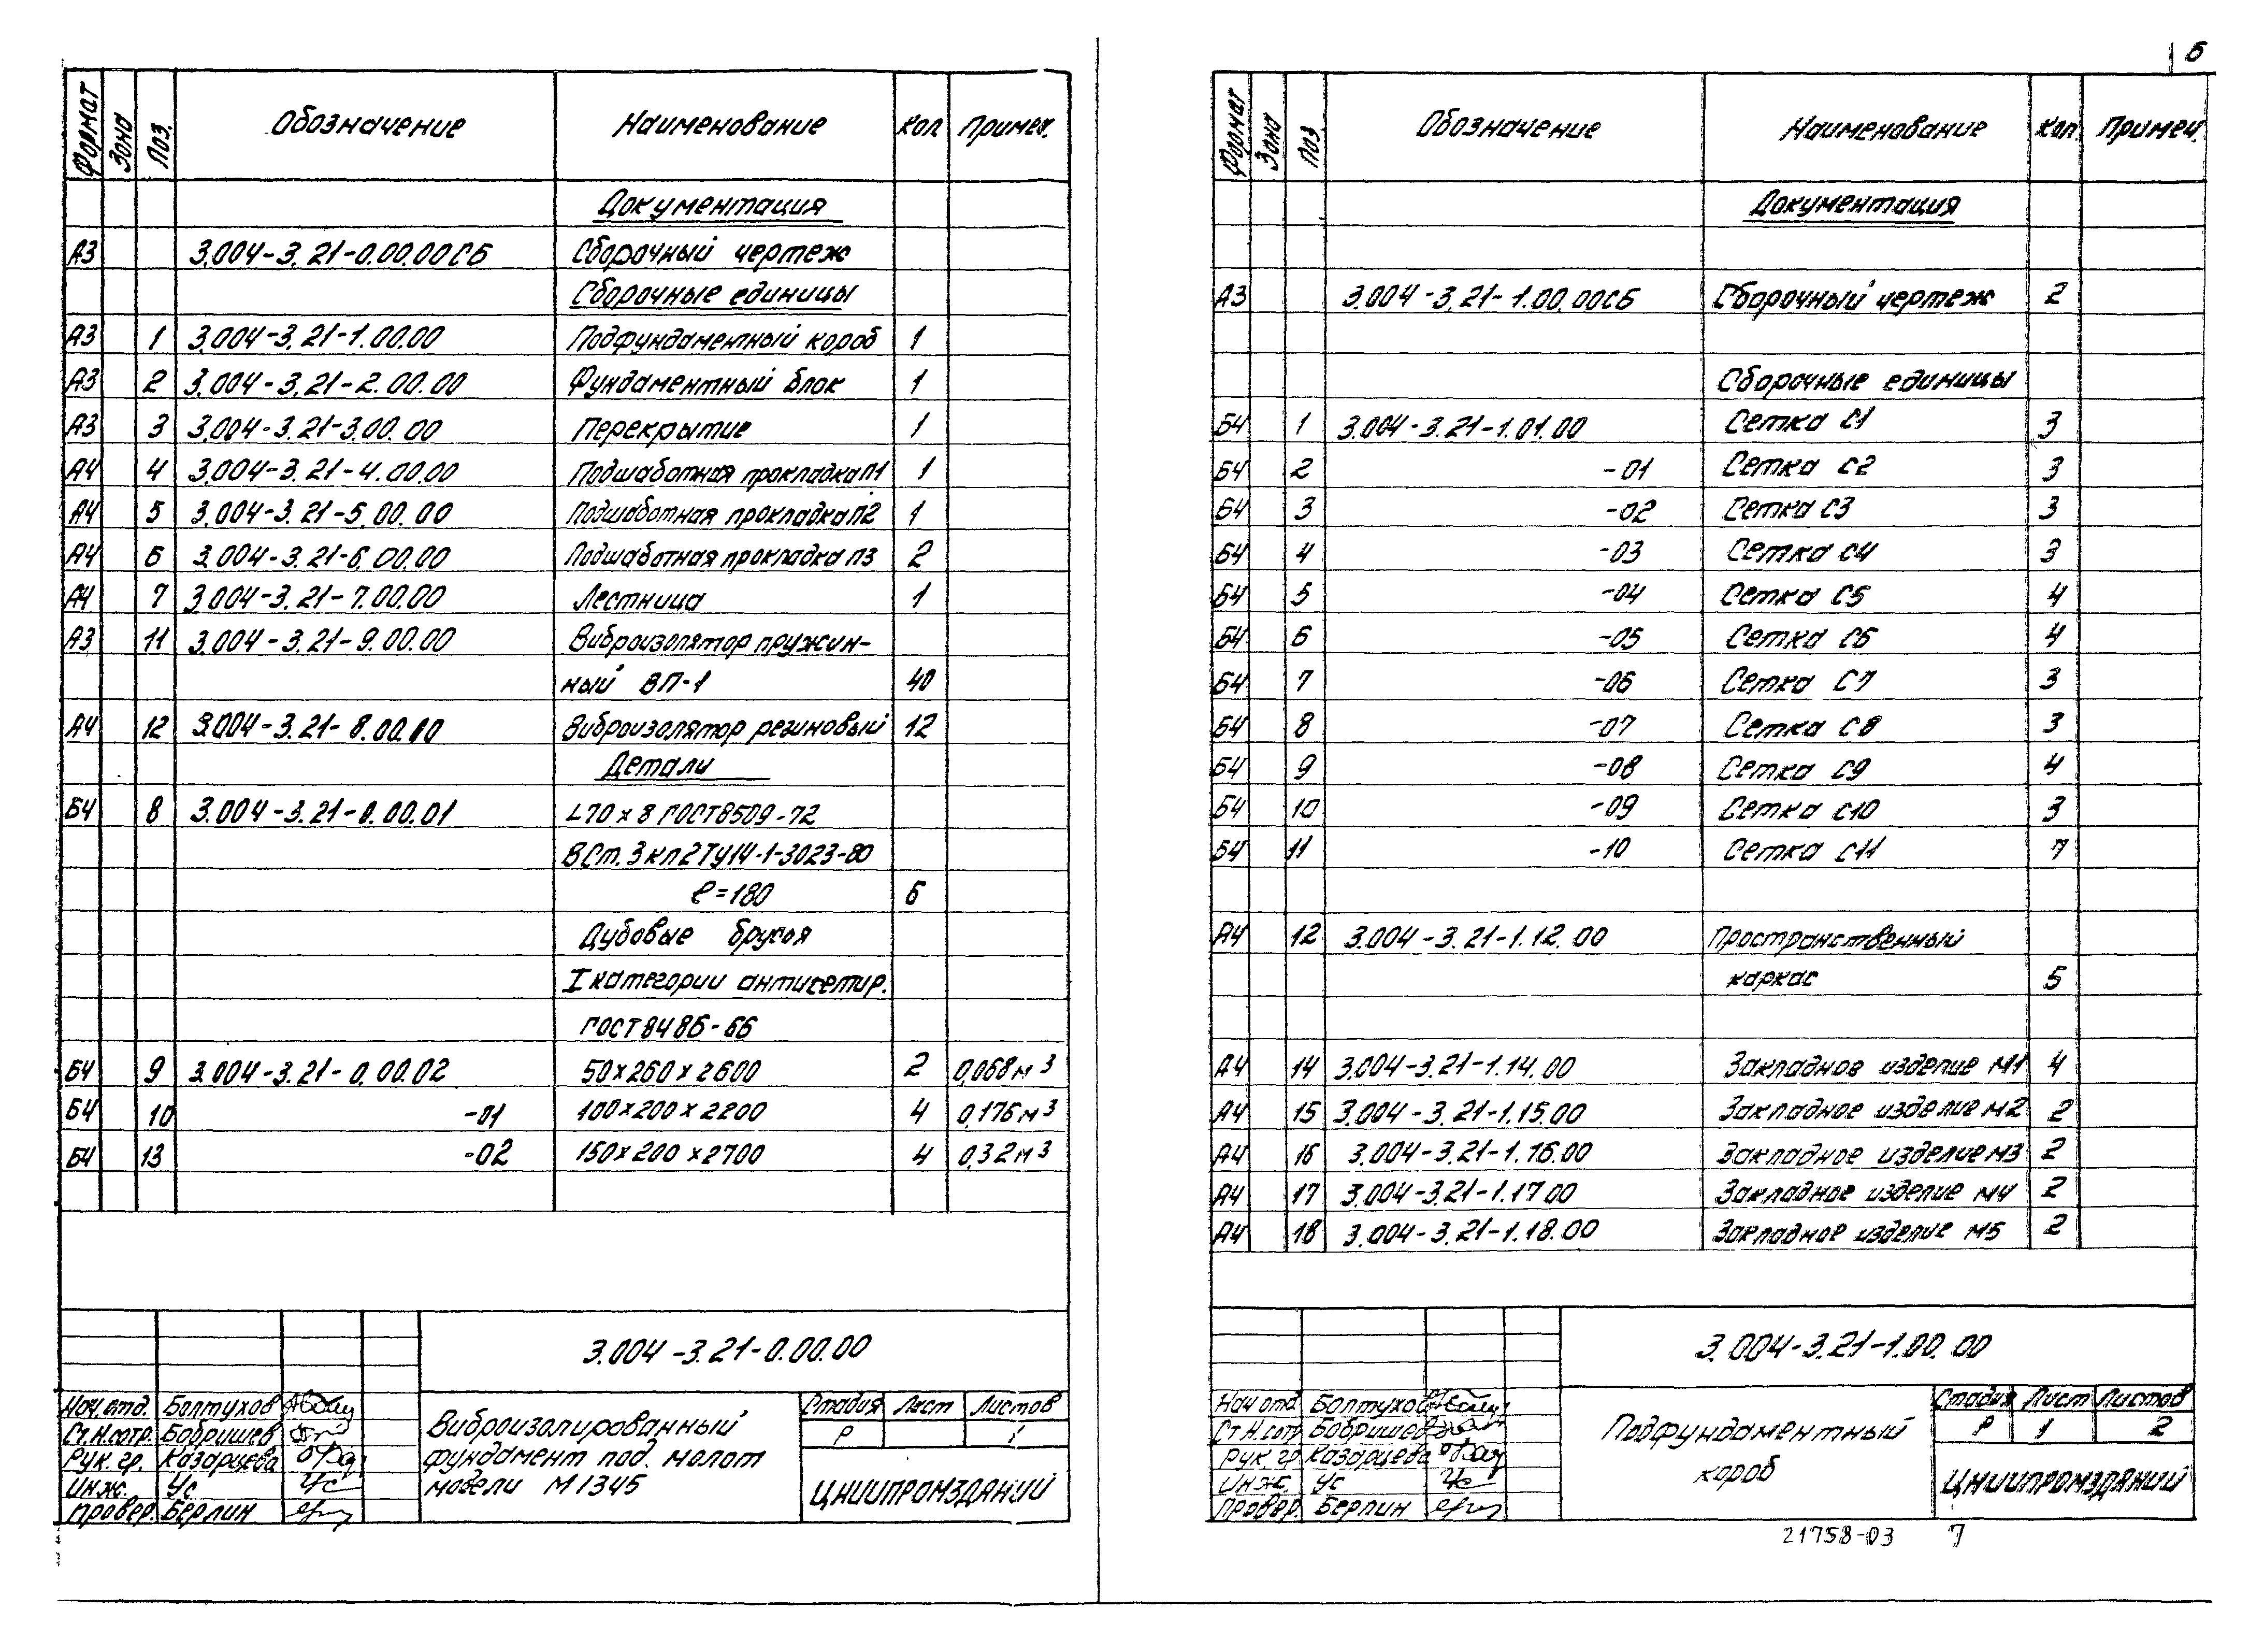 6
Формат Зона Поз. Обозначение Наименование Кол Примеч.
Документация
А3 3.004-3.21-0.00.00СБ Сборочный чертеж
Сборочные единицы
А3 1 3.004-3.21-1.00.00 Подфундаментный короб 1
А3 2 3.004-3.21-2.00.00 Фундаментный блок 1
А3 3 3.004-3.21-3.00.00 Перекрытие 1
А4 4 3.004-3.21-4.00.00 Подшаботная прокладка П1 1
А4 5 3.004-3.21-5.00.00 Подшаботная прокладка П2 1
А4 6 3.004-3.21-6.00.00 Подшаботная прокладка П3 2
А4 7 3.004-3.21-7.00.00 Лестница 1
А3 11 3.004-3.21-9.00.00 Виброизолятор пружин-
ный ВП-1 40
А4 12 3.004-3.21-8.00.00 Виброизолятор резиновый 12
Детали
Б4 8 3.004-3.21-0.00.01 L70×8 ГОСТ8509-72
ВСт.3кп2ТУ14-1-3023-80
ℓ=180 6
Дубовые брусья
I категории антисептир.
ГОСТ8486-66
Б4 9 3.004-3.21-0.00.02 50×260×2600 2 0,068м³
Б4 10 -01 100×200×2200 4 0,176м³
Б4 13 -02 150×200×2700 4 0,32м³
3.004-3.21-0.00.00
Нач.отд. Болтухов
Ст.н.сотр. Бобришев
Рук. гр. Казарцева
Инж. Ус
Провер. Берлин
Виброизолированный
фундамент под молот
модели М1345
Стадия Лист Листов
Р 1
ЦНИИПРОМЗДАНИЙ
Формат Зона Поз Обозначение Наименование Кол. Примеч.
Документация
А3 3.004-3.21-1.00.00СБ Сборочный чертеж 2
Сборочные единицы
Б4 1 3.004-3.21-1.01.00 Сетка С1 3
Б4 2 -01 Сетка С2 3
Б4 3 -02 Сетка С3 3
Б4 4 -03 Сетка С4 3
Б4 5 -04 Сетка С5 4
Б4 6 -05 Сетка С6 4
Б4 7 -06 Сетка С7 3
Б4 8 -07 Сетка С8 3
Б4 9 -08 Сетка С9 4
Б4 10 -09 Сетка С10 3
Б4 11 -10 Сетка С11 7
А4 12 3.004-3.21-1.12.00 Пространственный
каркас 5
А4 14 3.004-3.21-1.14.00 Закладное изделие М1 4
А4 15 3.004-3.21-1.15.00 Закладное изделие М2 2
А4 16 3.004-3.21-1.16.00 Закладное изделие М3 2
А4 17 3.004-3.21-1.17.00 Закладное изделие М4 2
А4 18 3.004-3.21-1.18.00 Закладное изделие М5 2
3.004-3.21-1.00.00
Нач отд Болтухов
Ст.н.сотр Бобришев
Рук гр Казарцева
Инж. Ус
Провер. Берлин
Подфундаментный
короб
Стадия Лист Листов
Р 1 2
ЦНИИПРОМЗДАНИЙ
21758-03 7